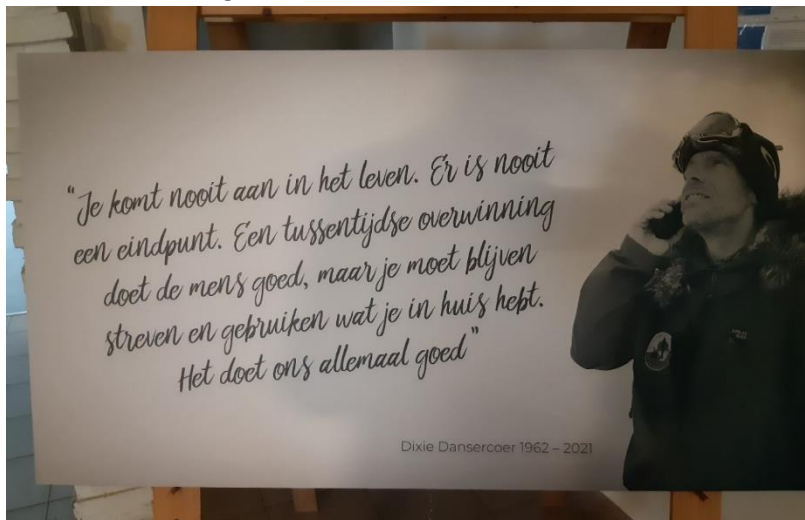 “Je komt nooit aan in het leven. Er is nooit
een eindpunt. Een tussentijdse overwinning
doet de mens goed, maar je moet blijven
streven en gebruiken wat je in huis hebt.
Het doet ons allemaal goed”
Dixie Dansercoer 1962 – 2021